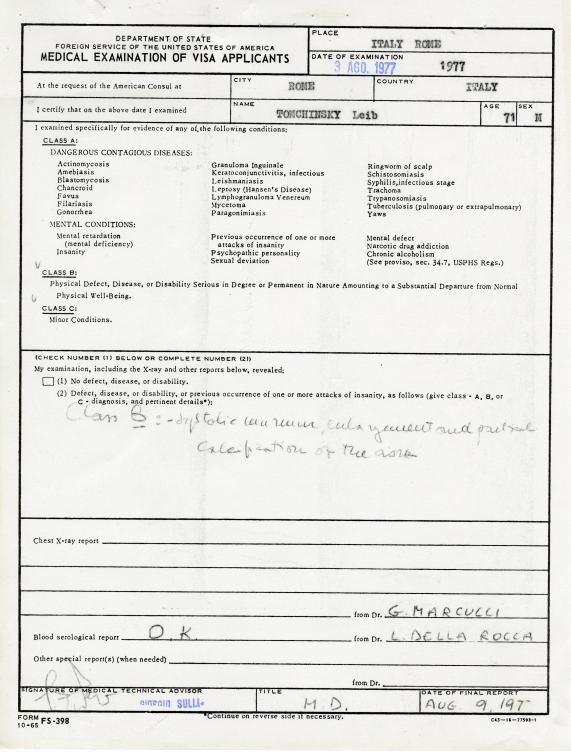 DEPARTMENT OF STATE
FOREIGN SERVICE OF THE UNITED STATES OF AMERICA
MEDICAL EXAMINATION OF VISA APPLICANTS
PLACE
ITALY ROME
DATE OF EXAMINATION
3 AGO. 1977 1977
At the request of the American Consul at
CITY
ROME
COUNTRY
ITALY
I certify that on the above date I examined
NAME
TOMCHINSKY Leib
AGE
71
SEX
M
I examined specifically for evidence of any of the following conditions:
CLASS A:
DANGEROUS CONTAGIOUS DISEASES:
Actinomycosis
Amebiasis
Blastomycosis
Chancroid
Favus
Filariasis
Gonorrhea
Granuloma Inguinale
Keratoconjunctivitis, infectious
Leishmaniasis
Leprosy (Hansen's Disease)
Lymphogranuloma Venereum
Mycetoma
Paragonimiasis
Ringworm of scalp
Schistosomiasis
Syphilis, infectious stage
Trachoma
Trypanosomiasis
Tuberculosis (pulmonary or extrapulmonary)
Yaws
MENTAL CONDITIONS:
Mental retardation
(mental deficiency)
Insanity
Previous occurrence of one or more
attacks of insanity
Psychopathic personality
Sexual deviation
Mental defect
Narcotic drug addiction
Chronic alcoholism
(See proviso, sec. 34.7, USPHS Regs.)
CLASS B:
Physical Defect, Disease, or Disability Serious in Degree or Permanent in Nature Amounting to a Substantial Departure from Normal
Physical Well-Being.
CLASS C:
Minor Conditions.
(CHECK NUMBER (1) BELOW OR COMPLETE NUMBER (2))
My examination, including the X-ray and other reports below, revealed:
(1) No defect, disease, or disability.
(2) Defect, disease, or disability, or previous occurrence of one or more attacks of insanity, as follows (give class - A, B, or
C - diagnosis, and pertinent details*):
Class B : - systolic murmur, enlargement and partial
calcification of the
Chest X-ray report
from Dr. G. MARCUCCI
Blood serological report O.K. from Dr. L. DELLA ROCCA
Other special report(s) (when needed)
from Dr.
SIGNATURE OF MEDICAL TECHNICAL ADVISOR
TITLE
M.D.
DATE OF FINAL REPORT
AUG 9, 197
FORM FS-398
10-65
*Continue on reverse side if necessary.